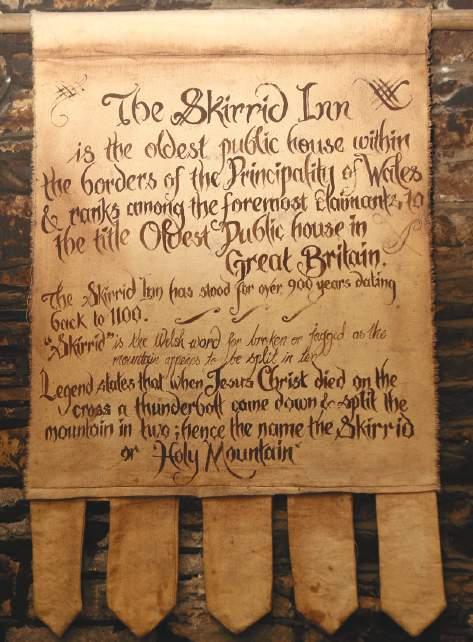 The Skirrid Inn
is the oldest public house within
the borders of the Principality of Wales
& ranks among the foremost claimants to
the title Oldest Public house in
Great Britain.
The Skirrid Inn has stood for over 900 years dating
back to 1100.
"Skirrid" is the Welsh word for broken or jagged as the
mountain appears to be split in
Legend states that when Jesus Christ died on the
cross a thunderbolt came down & split the
mountain in two; hence the name the Skirrid
or Holy Mountain